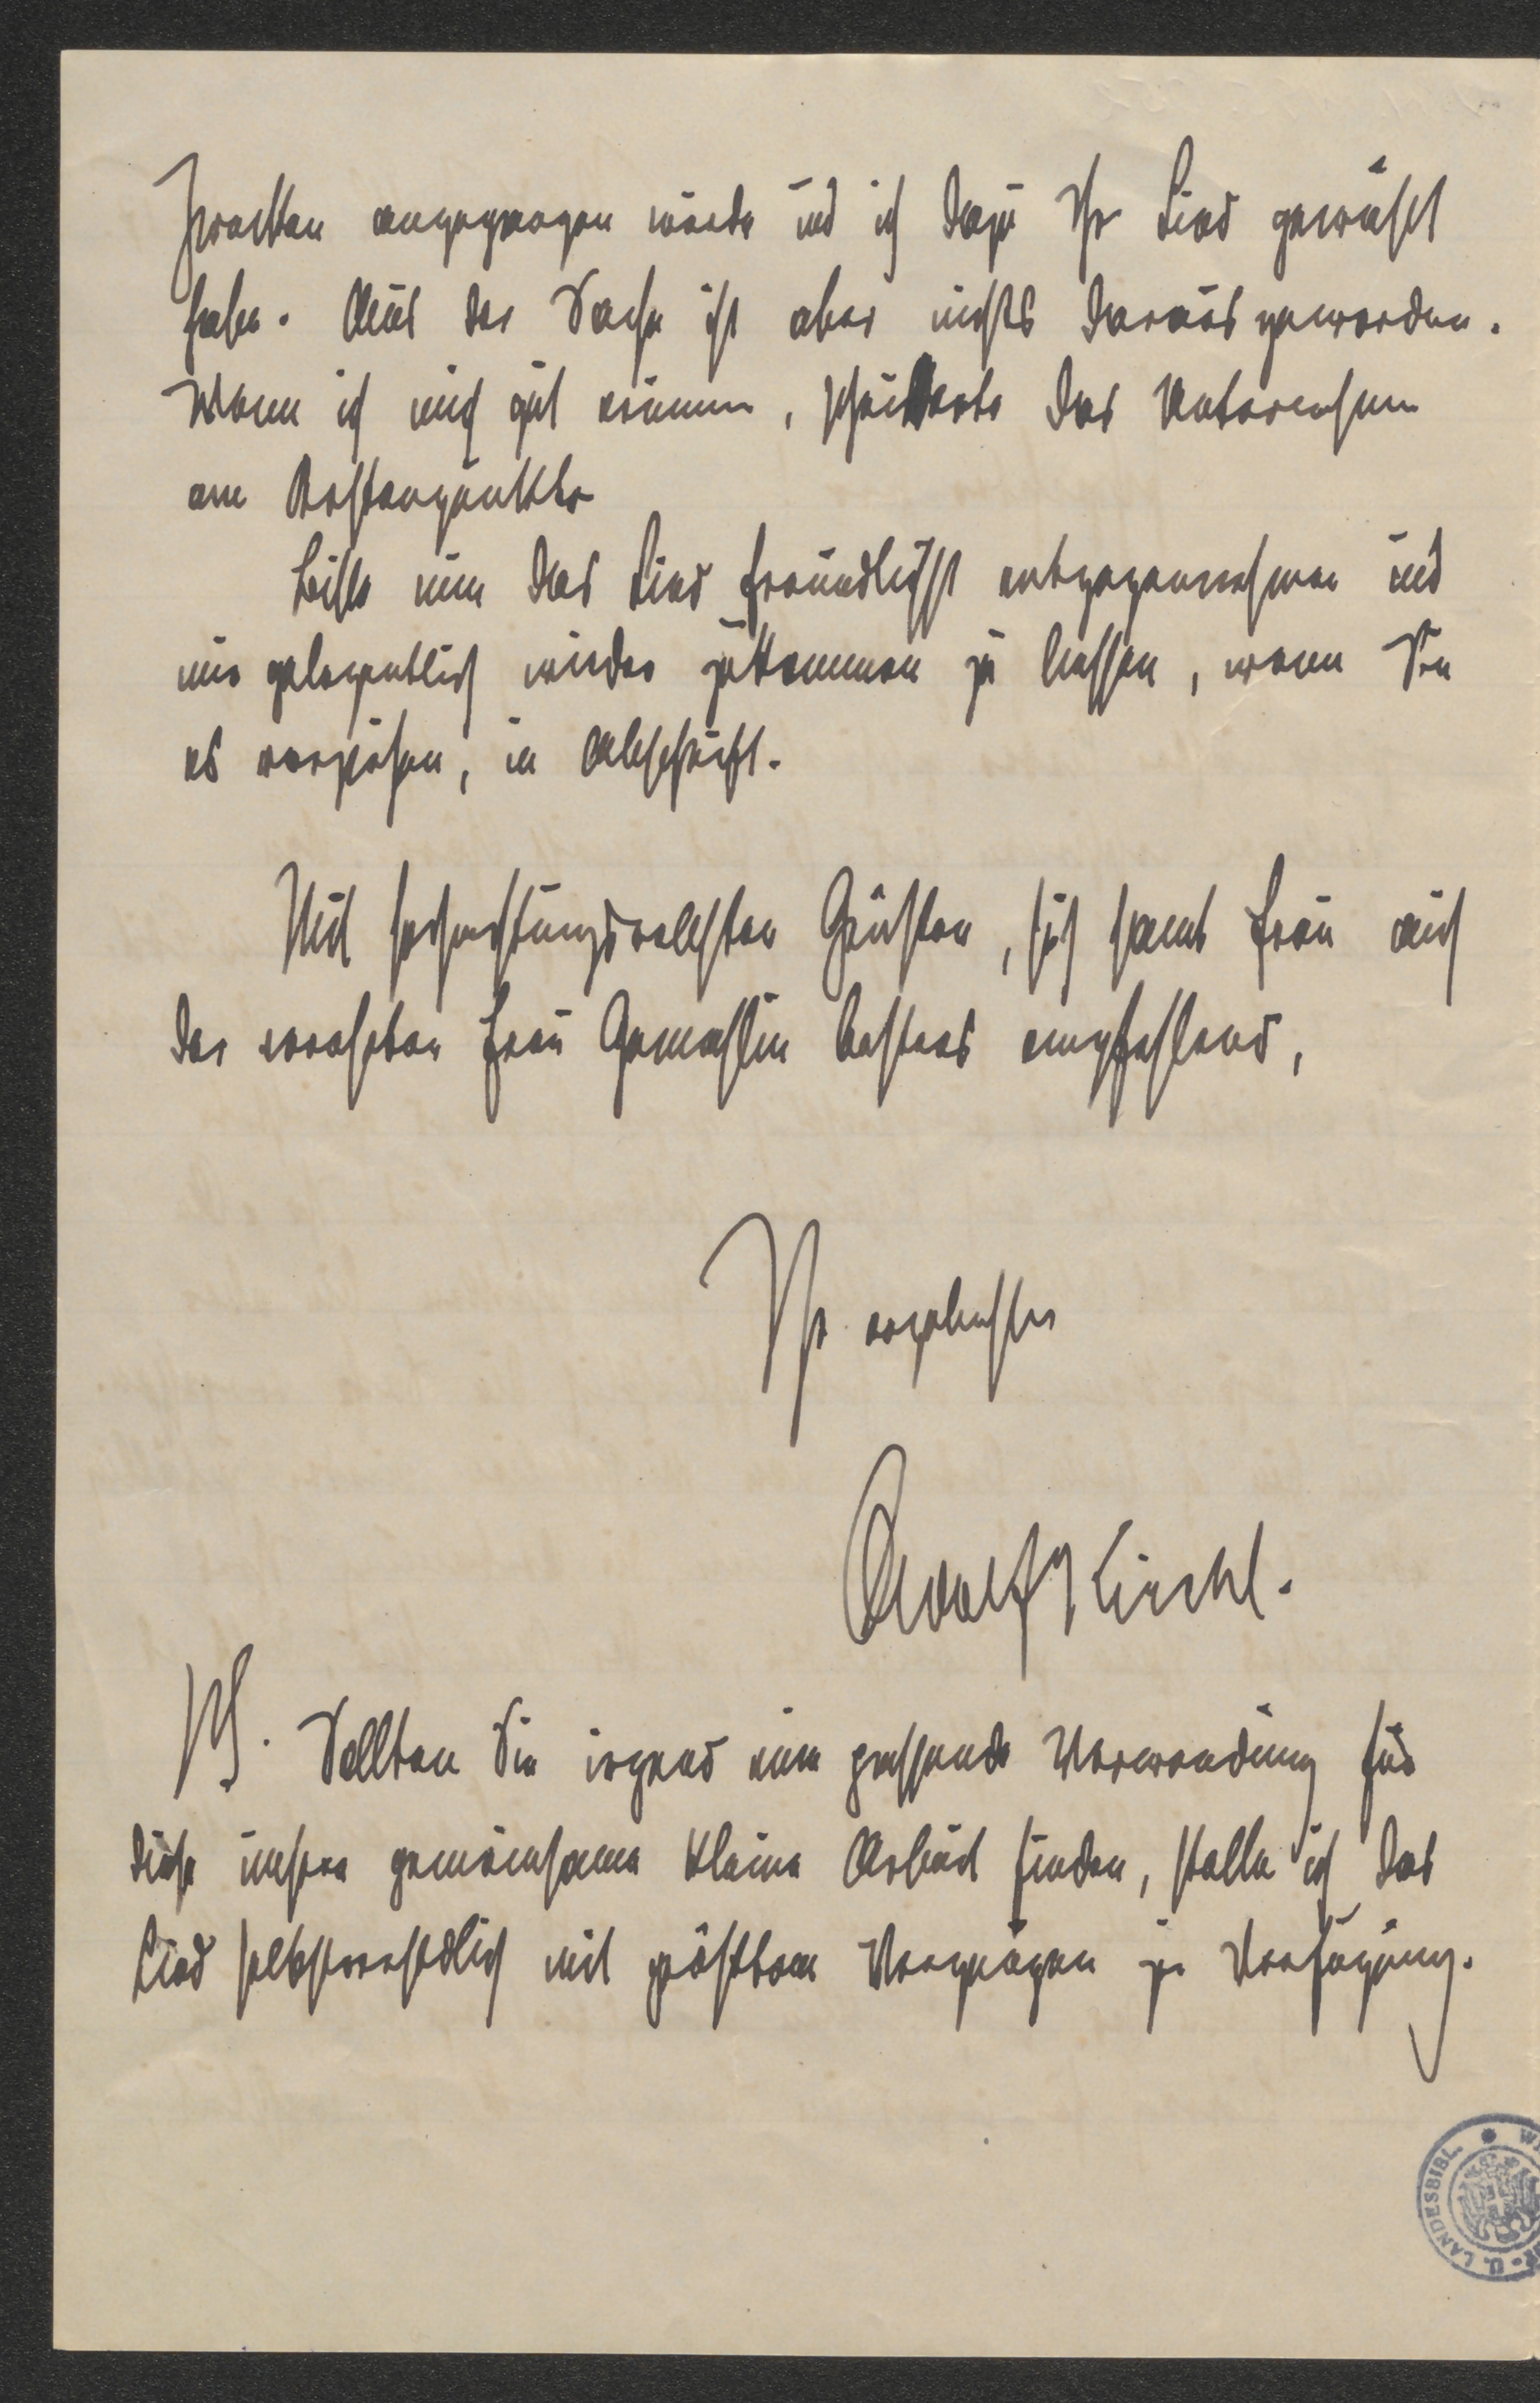 Zwecken angegangen wurde und ich dazu Ihr Lied gewählt
habe. Aus der Sache ist aber nichts daraus geworden.
Wenn ich mich gut erinnere, scheiterte das Unternehmen
am Kostenpunkte
Bitte nun das Lied freundlichst entgegennehmen und
mir gelegentlich wieder zukommen zu lassen, wenn Sie
es vorziehen, in Abschrift.
Mit hochachtungsvollsten Grüßen, sich samt Frau auch
der verehrten Frau Gemahlin bestens empfehlend,
Ihr ergebenster
Adolf Kirchl.
PS. Sollten Sie irgend eine passende Verwendung für
diese unsere gemeinsame kleine Arbeit finden, stelle ich das
Lied selbstverständlich mit größtem Vergnügen zur Verfügung.
U. LANDESBIBL. * W